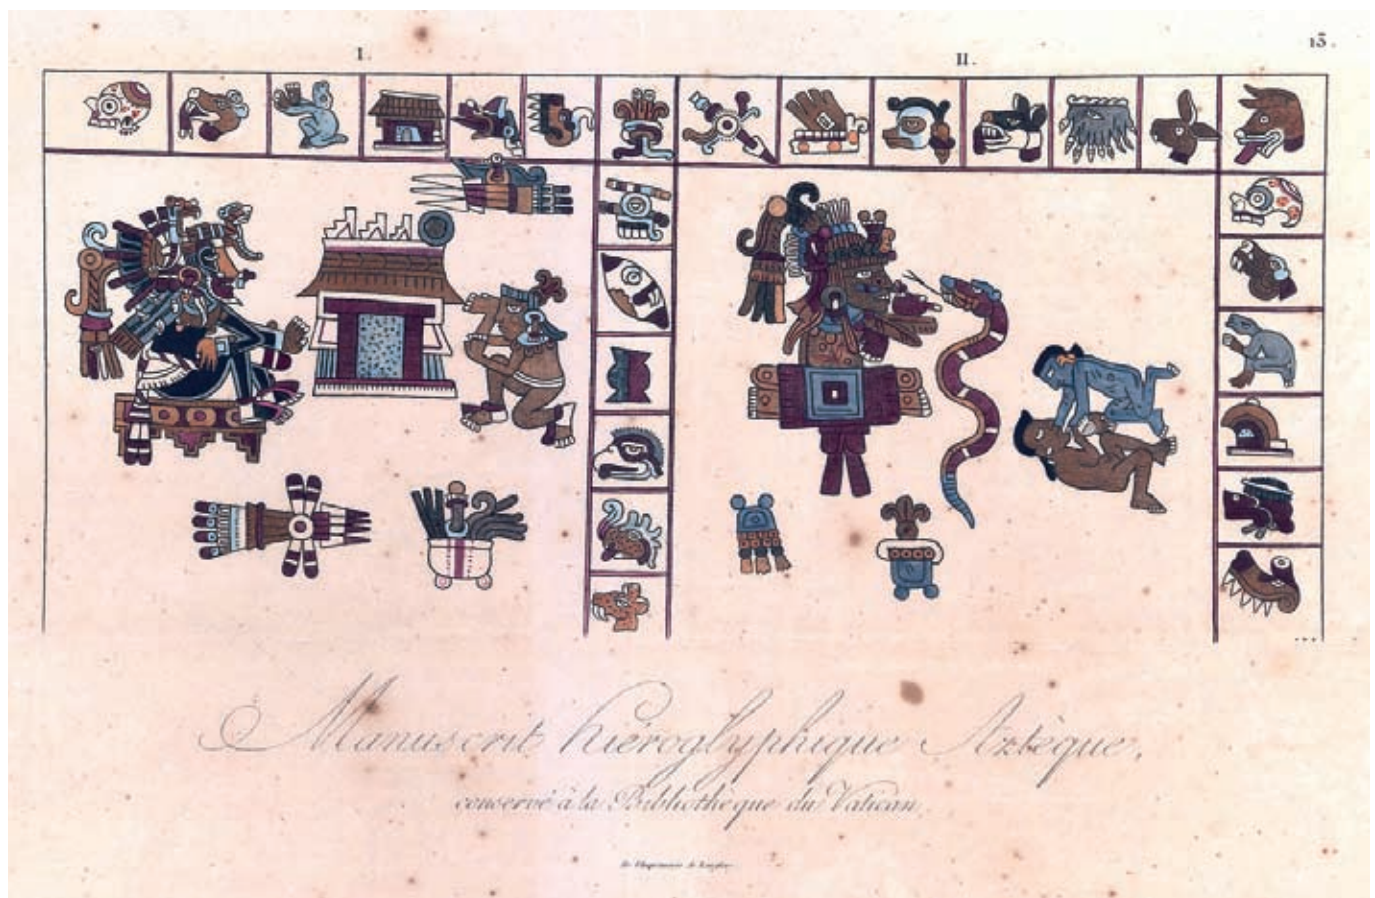 13.
I. II.
Manuscrit hiéroglyphique Aztèque,
conservé à la Bibliothèque du Vatican.
De l'Imprimerie de Langlois